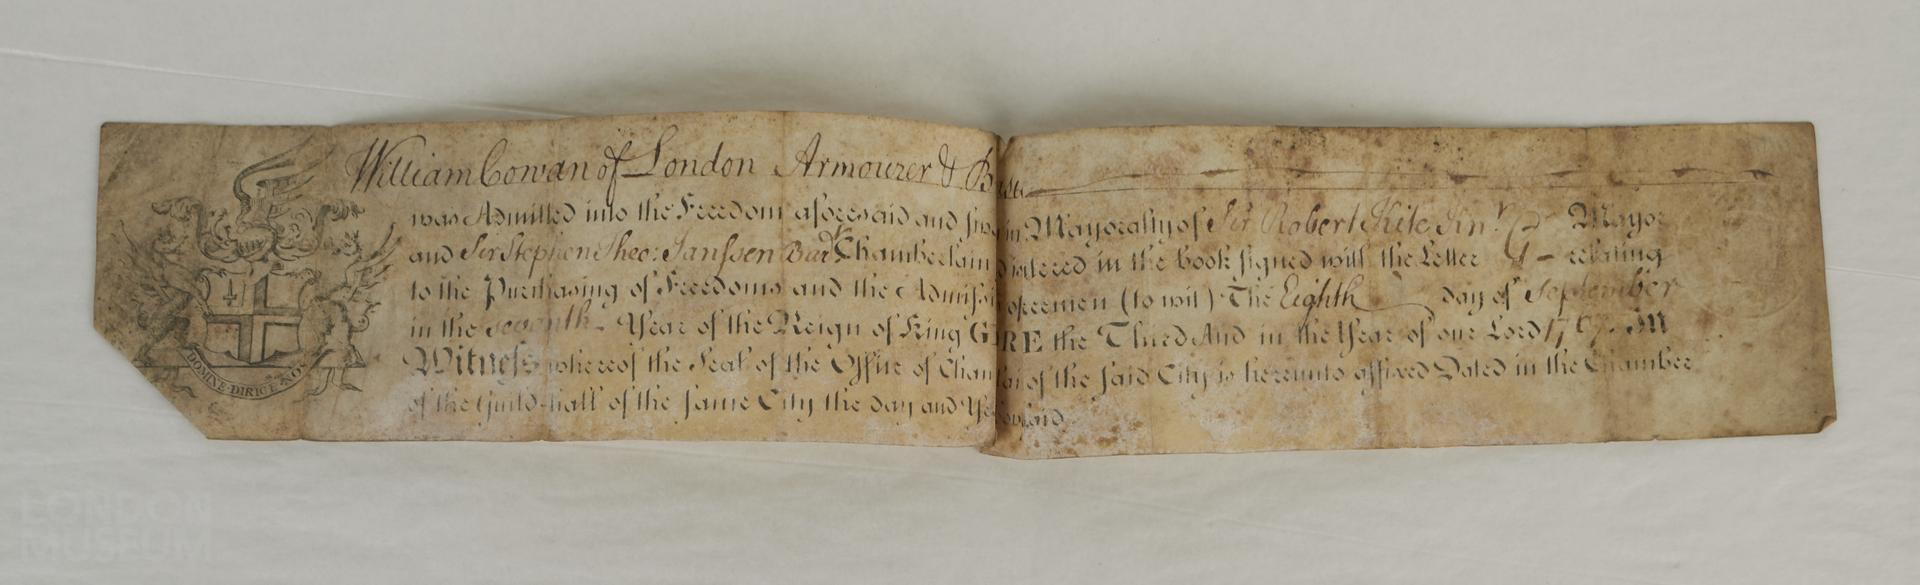 DOMINE · DIRIGE · NOS
William Cowan of London Armourer & Bras
was Admitted into the Freedom aforesaid and in Mayoralty of Sir Robert Kite Knt. Mayor
and Sir Stephen Theo: Janssen Bart Chamberlain entered in the book signed with the Letter relating
to the Purchasing of Freedoms and the Admiss of Freemen (to wit) The Eighth day of September
in the seventh Year of the Reign of King GE RGE the Third And in the Year of our Lord 1767. In
Witness whereof the Seal of the Office of Cham of the said City is hereunto affixed Dated in the Chamber
of the Guild-hall of the same City the day and Ye aforesaid
LONDON
MUSEUM